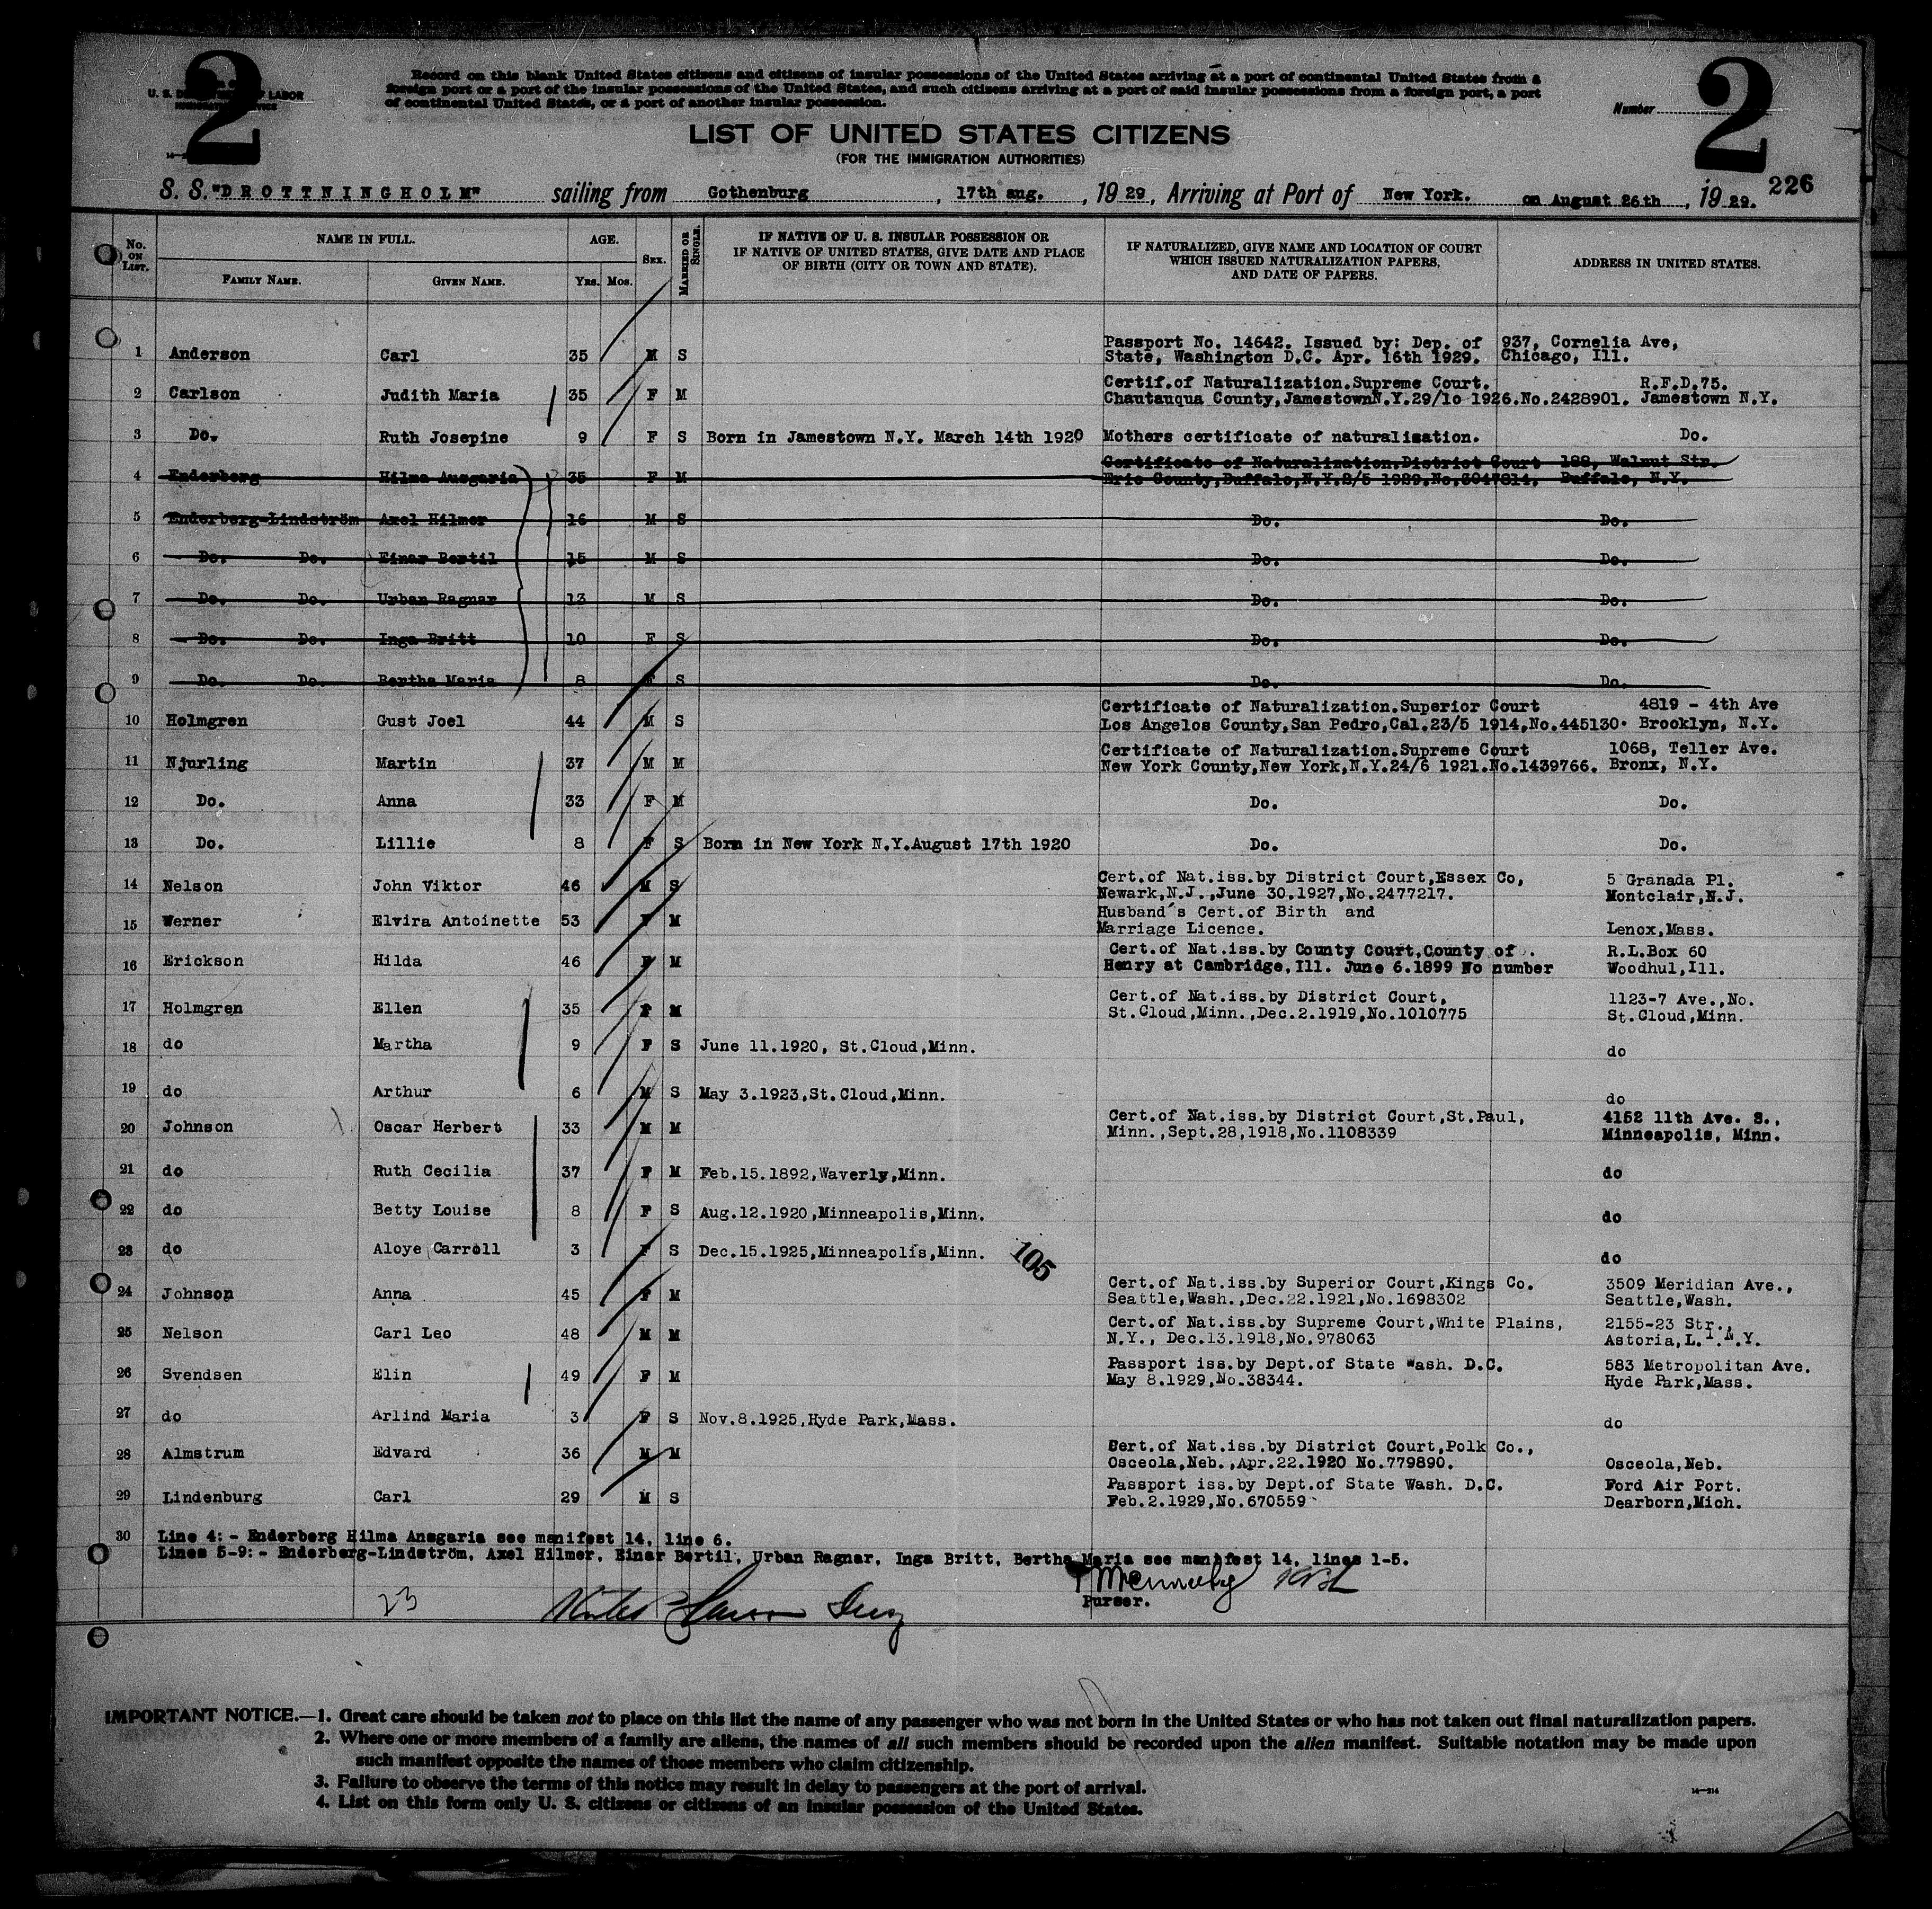 2
2
U. S. D LABOR
Record on this blank United States citizens and citizens of insular possessions of the United States arriving at a port of continental United States from a
foreign port or a port of the insular possessions of the United States, and such citizens arriving at a port of said insular possessions from a foreign port, a port
of continental United States, or a port of another insular possession.
Number
LIST OF UNITED STATES CITIZENS
(FOR THE IMMIGRATION AUTHORITIES)
S. S. "DROTTNINGHOLM" sailing from Gothenburg, 17th aug., 1929, Arriving at Port of New York. on August 26th, 1929. 226
No. ON LIST. NAME IN FULL. AGE. SEX. MARRIED OR SINGLE. IF NATIVE OF U. S. INSULAR POSSESSION OR IF NATIVE OF UNITED STATES, GIVE DATE AND PLACE OF BIRTH (CITY OR TOWN AND STATE). IF NATURALIZED, GIVE NAME AND LOCATION OF COURT WHICH ISSUED NATURALIZATION PAPERS, AND DATE OF PAPERS. ADDRESS IN UNITED STATES.
FAMILY NAME. GIVEN NAME. YRS. MOS.
Passport No. 14642. Issued by: Dep. of 937, Cornelia Ave,
1 Anderson Carl 35 M S State, Washington D.C. Apr. 16th 1929. Chicago, Ill.
Certif.of Naturalization.Supreme Court. R.F.D.75.
2 Carlson Judith Maria 35 F M Chautauqua County,JamestownN.Y.29/1o 1926.No.2428901. Jamestown N.Y.
3 Do. Ruth Josepine 9 F S Born in Jamestown N.Y. March 14th 1920 Mothers certificate of naturalization. Do.
Certificate of Naturalization.District Court 188, Walnut Str.
4 Enderberg Hilma Ausgaria 35 F M Erie County,Buffalo,N.Y.2/5 1929.No.3047814. Buffalo, N.Y.
5 Enderberg-Lindström Axel Hilmer 16 M S Do. Do.
6 Do. Do. Einar Bertil 15 M S Do. Do.
7 Do. Do. Urban Ragnar 13 M S Do. Do.
8 Do. Do. Inga Britt 10 F S Do. Do.
9 Do. Do. Bertha Maria 8 F S Do. Do.
Certificate of Naturalization.Superior Court 4819 - 4th Ave
10 Holmgren Gust Joel 44 M S Los Angelos County,San Pedro,Cal.23/5 1914,No.445130. Brooklyn, N.Y.
Certificate of Naturalization.Supreme Court 1068, Teller Ave.
11 Njurling Martin 37 M M New York County,New York,N.Y.24/6 1921.No.1439766. Bronx, N.Y.
12 Do. Anna 33 F M Do. Do.
13 Do. Lillie 8 F S Born in New York N.Y.August 17th 1920 Do. Do.
Cert.of Nat.iss.by District Court,Essex Co, 5 Granada Pl.
14 Nelson John Viktor 46 M S Newark,N.J.,June 30.1927,No.2477217. Montclair,N.J.
Husband's Cert.of Birth and
15 Werner Elvira Antoinette 53 F M Marriage Licence. Lenox,Mass.
Cert.of Nat.iss.by County Court,County of R.L.Box 60
16 Erickson Hilda 46 F M Henry at Cambridge, Ill. June 6.1899 No number Woodhul,Ill.
Cert.of Nat.iss.by District Court, 1123-7 Ave.,No.
17 Holmgren Ellen 35 F M St.Cloud,Minn.,Dec.2.1919,No.1010775 St.Cloud,Minn.
18 do Martha 9 F S June 11.1920, St.Cloud,Minn. do
19 do Arthur 6 M S May 3.1923,St.Cloud,Minn. do
Cert.of Nat.iss.by District Court,St.Paul, 4152 11th Ave. S.,
20 Johnson Oscar Herbert 33 M M Minn.,Sept.28,1918,No.1108339 Minneapolis, Minn.
21 do Ruth Cecilia 37 F M Feb.15.1892,Waverly,Minn. do
22 do Betty Louise 8 F S Aug.12.1920,Minneapolis,Minn. do
23 do Aloye Carroll 3 F S Dec.15.1925,Minneapolis,Minn. do
105
Cert.of Nat.iss.by Superior Court,Kings Co. 3509 Meridian Ave.,
24 Johnson Anna 45 F M Seattle,Wash.,Dec.22.1921,No.1698302 Seattle,Wash.
Cert.of Nat.iss.by Supreme Court,White Plains, 2155-23 Str.,
25 Nelson Carl Leo 48 M M N.Y., Dec.13.1918,No.978063 Astoria,L.I.N.Y.
Passport iss.by Dept.of State Wash. D.C. 583 Metropolitan Ave.
26 Svendsen Elin 49 F M May 8.1929,No.38344. Hyde Park,Mass.
27 do Arlind Maria 3 F S Nov.8.1925,Hyde Park,Mass. do
Cert.of Nat.iss.by District Court,Polk Co.,
28 Almstrum Edvard 36 M M Osceola,Neb.,Apr.22.1920 No.779890. Osceola,Neb.
Passport iss.by Dept.of State Wash. D.C. Ford Air Port.
29 Lindenburg Carl 29 M S Feb.2.1929,No.670559 Dearborn,Mich.
30 Line 4:- Enderberg Hilma Ansgaria see manifest 14, line 6.
Lines 5-9:- Enderberg-Lindström, Axel Hilmer, Einar Bertil, Urban Ragnar, Inga Britt, Bertha Maria see manifest 14, lines 1-5.
23
Purser.
IMPORTANT NOTICE.—1. Great care should be taken not to place on this list the name of any passenger who was not born in the United States or who has not taken out final naturalization papers.
2. Where one or more members of a family are aliens, the names of all such members should be recorded upon the alien manifest. Suitable notation may be made upon
such manifest opposite the names of those members who claim citizenship.
3. Failure to observe the terms of this notice may result in delay to passengers at the port of arrival.
4. List on this form only U. S. citizens or citizens of an insular possession of the United States.
14—214